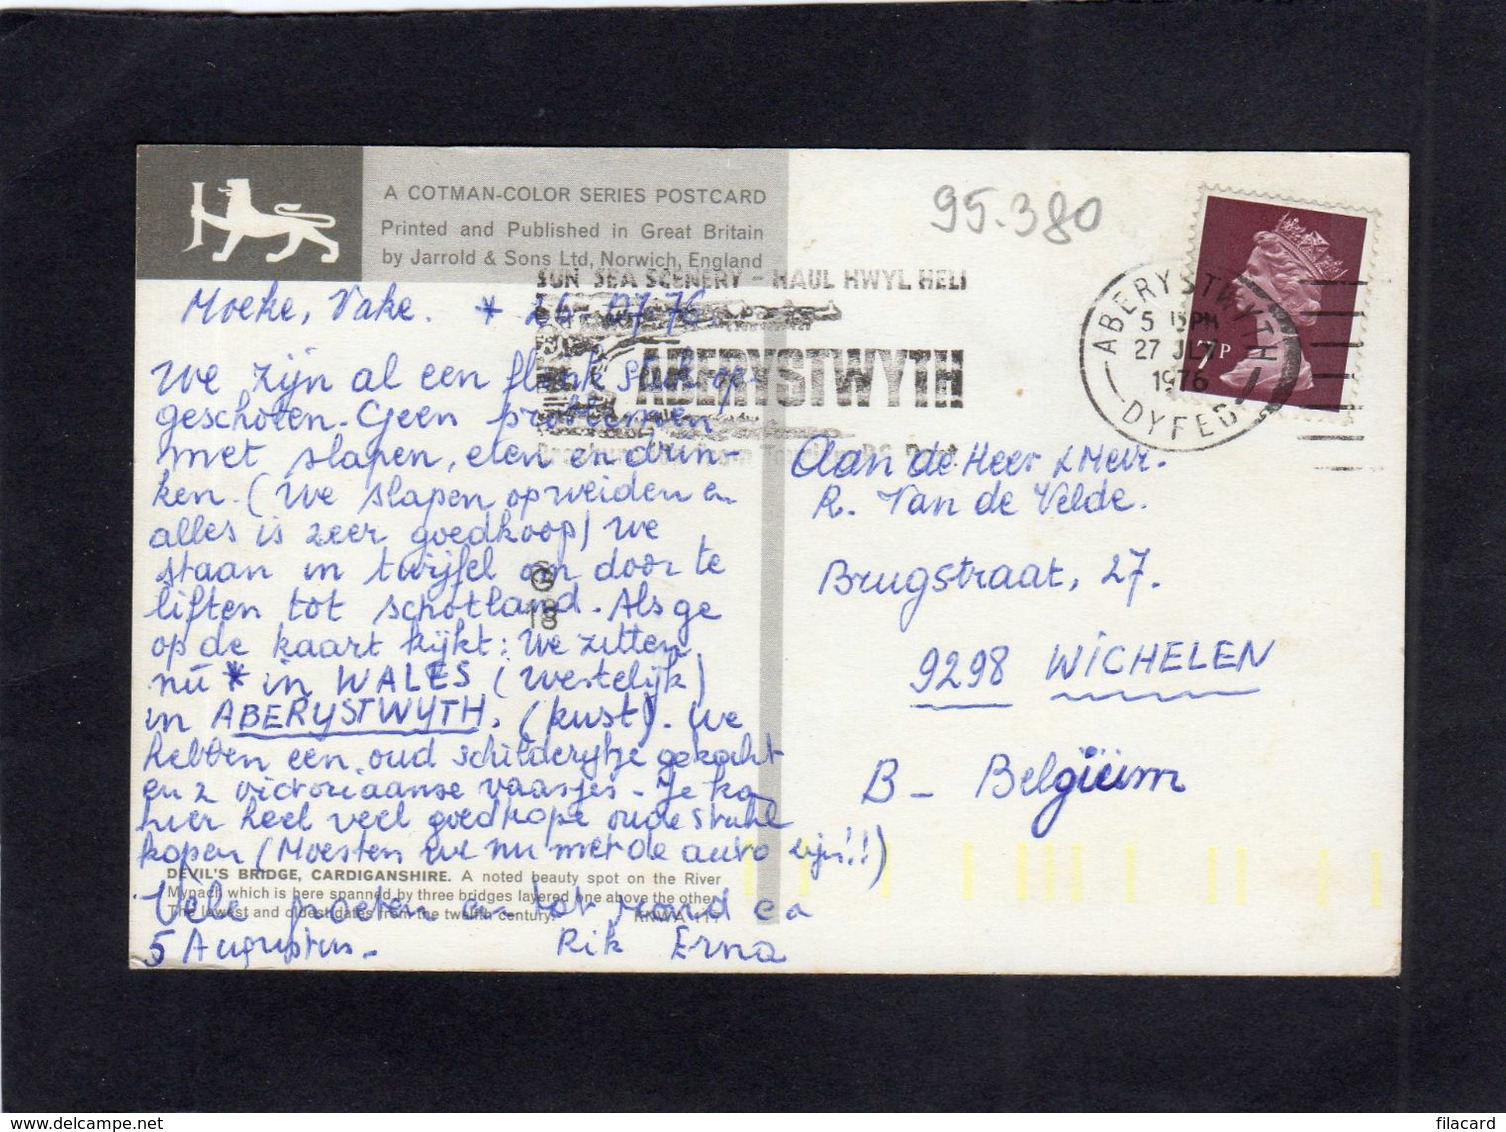 A COTMAN-COLOR SERIES POSTCARD
Printed and Published in Great Britain
by Jarrold & Sons Ltd, Norwich, England
95.380
SUN SEA SCENERY - HAUL HWYL HELI
ABERYSTWYTH
ABERYSTWYTH
5 PM
27 JLY
1976
DYFED
7P
Moeke, Vake. * 26-07-76.
We zijn al een flink stuk op-
geschoten. Geen problemen
met slapen, eten en drin-
ken. (We slapen op weiden en
alles is zeer goedkoop) We
staan in twijfel om door te
liften tot schotland. Als ge
op de kaart kijkt: We zitten
nu * in WALES (westelijk)
in ABERYSTWYTH. (kust). We
hebben een oud schilderijtje gekocht
en 2 victoriaanse vaasjes - Je kan
hier heel veel goedkope oude stukken
kopen (Moesten we nu met de auto zijn!!)
DEVIL'S BRIDGE, CARDIGANSHIRE. A noted beauty spot on the River
Mynach which is here spanned by three bridges layered one above the other.
The lowest and oldest dates from the twelfth century.
Vele groeten en tot rond
5 Augustus.
Rik Erna
18
Aan de Heer & Mevr.
R. Van de Velde.
Brugstraat, 27.
9298 WICHELEN
B - Belgïum
www.delcampe.net
filacard